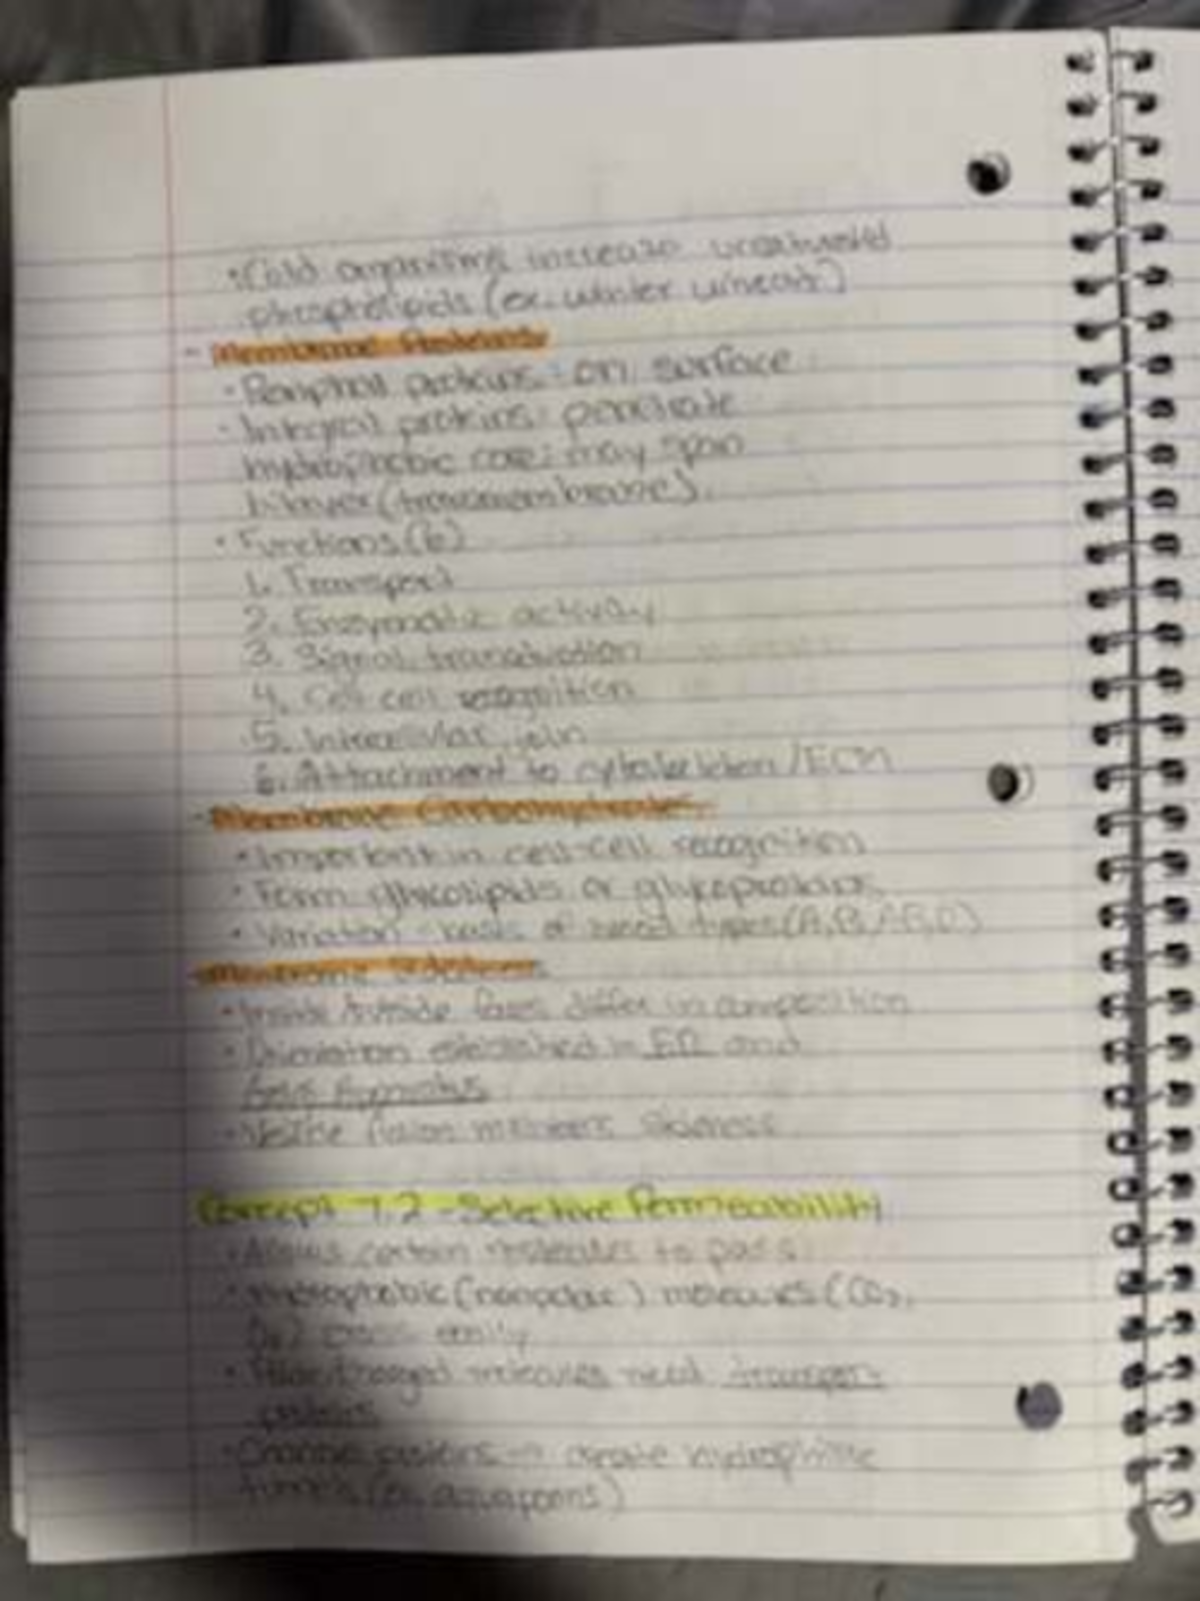 • Cold organisms increase unsaturated
phospholipids (ex. winter wheat)
- Membrane Proteins
• Peripheral proteins: on surface
• Integral proteins: penetrate
hydrophobic core; may span
bilayer (transmembrane).
• Functions (6)
1. Transport
2. Enzymatic activity
3. Signal transduction
4. Cell-cell recognition
5. Intercellular join
6. Attachment to cytoskeleton/ECM
- Membrane Carbohydrates:
• Important in cell-cell recognition
• Form glycolipids or glycoproteins
• Variation basis of blood types (A, B, AB, O)
- Membrane Sidedness
• Inside/outside faces differ in composition
• Orientation established in ER and
Golgi Apparatus
• Vesicle fusion sidedness
Concept 7.2 - Selective Permeability
• Allows certain molecules to pass
• Hydrophobic (nonpolar) molecules (CO₂,
O₂) cross easily
• Polar/charged molecules need transport
proteins
• Channel proteins → create hydrophilic
tunnels (ex. aquaporins)